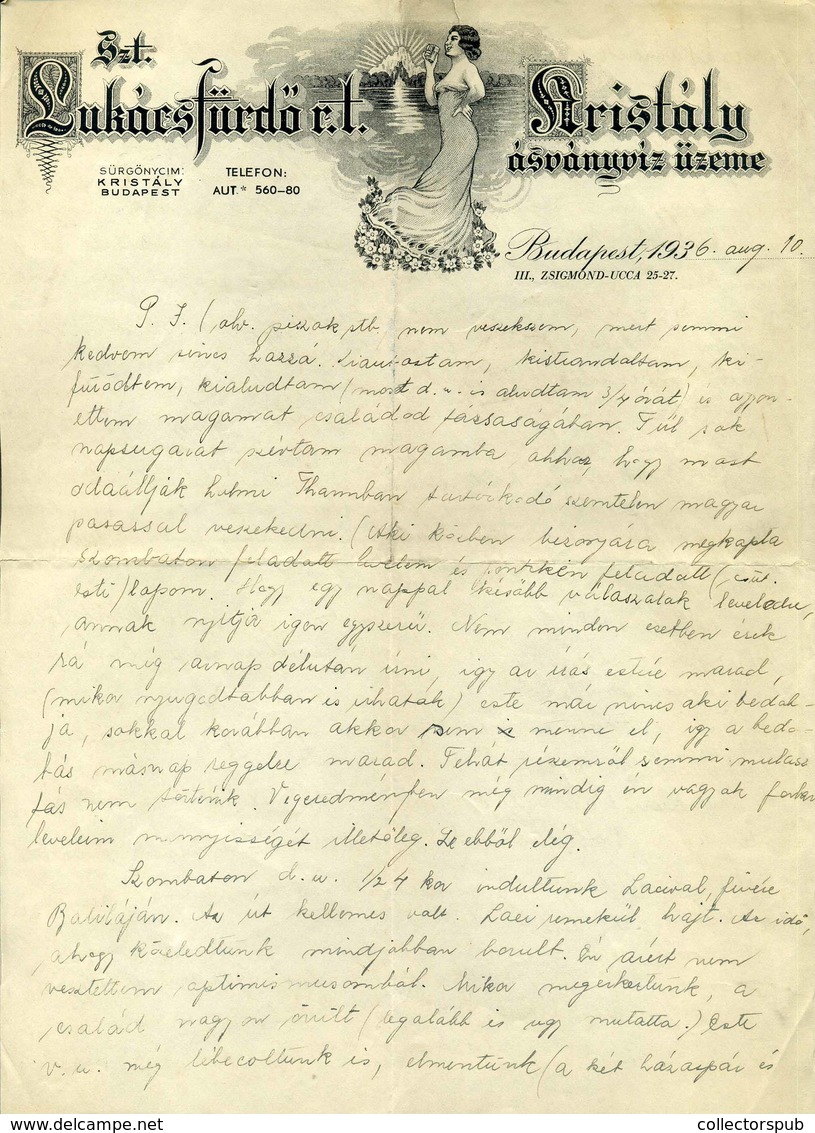 Szt.
Lukácsfürdő r.t.
Kristály
ásványvíz üzeme
SÜRGÖNYCIM:
KRISTÁLY
BUDAPEST
TELEFON:
AUT.* 560–80
Budapest, 1936. aug. 10.
III., ZSIGMOND-UCCA 25-27.
P. I. (olv. piszok stb. nem veszekszem, mert semmi
kedvem sincs hozzá. kistrandoltam, ki-
fürödtem, kialudtam (most d. u. is aludtam 3/4 órát) és
magamat családod társaságában. Túl sok
napsugarat szívtam magamba ahhoz, hogy most
odaálljak Thannban tartózkodó szemtelen magyar
passassal veszekedni. (Aki közben bizonyára megkapta
szombaton feladott levelem és feladott (csüt.
esti) lapom. Hogy egy nappal később válaszolok leveledre,
annak nyitja igen egyszerű. Nem minden esetben érek
rá még aznap délután írni, így az írás estére marad,
(mikor nyugodtabban is írhatok) este már nincs aki bedob-
ja, sokkal korábban akkor sem menne el, így a bedo-
bás másnap reggelre marad. Tehát részemről semmi mulasz
tás nem történt. Végeredményben még mindig én vagyok
leveleim mennyiségét illetőleg. De ebből elég.
Szombaton d. u. 1/2 4 kor indultunk Lacival, fivére
Balilláján. Az út kellemes volt. Laci remekül hajt. Az idő,
ahogy közeledtünk mindjobban borult. Én azért nem
vesztettem optimismusomból. Mikor megérkeztünk, a
család nagyon örült (legalább is úgy mutatta.) Este
v. u. még lébecoltunk is, elmentünk (a két házaspár és
collectorspub